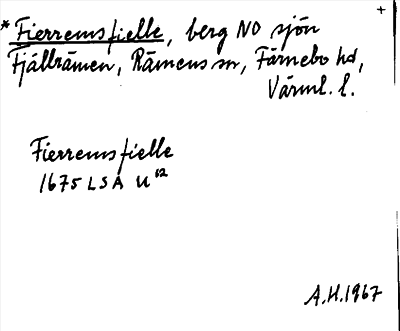 +
* Fierremsfielle, berg NO sjön
Fjällrämen, Rämens sn, Färnebo hd,
Värml. l.
Fierremsfielle
1675 LSA U¹²
A.H. 1967